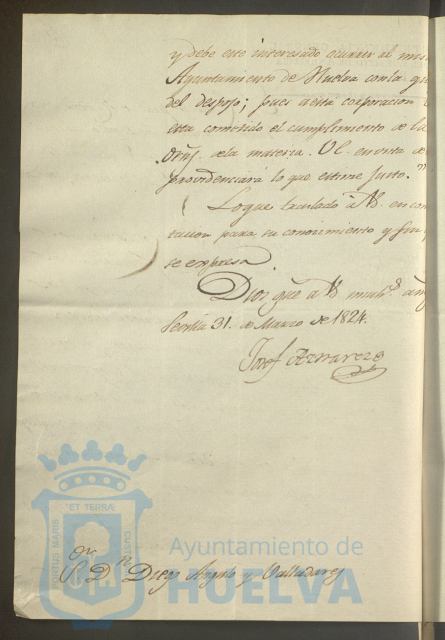 y debe este interesado ocurrir al mis
Ayuntamiento de Huelva con la qu
del despojo; pues a esta corporacion
esta cometido el cumplimiento de la
de la materia. VE. en vista de
providenciará lo que estime justo."
Lo que traslado á VS. en con
tacion para su conocimiento y
se expresa.
Dios gue. a VS. much.s añ
Sevilla 31. de Marzo de 1824.
Josef Arnarez
or
S. D.n Diego Angulo y Valladares
ET TERRÆ
PORTUS MARIS
CUSTODIA
Ayuntamiento de
HUELVA